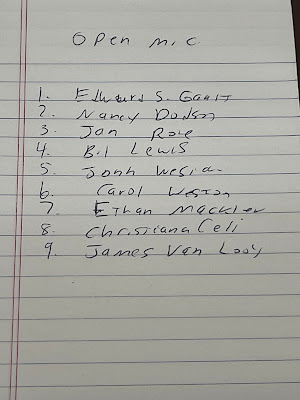 Open mic
1. Edward S. Gault
2. Nancy Dodson
3. Jon Roie
4. Bil Lewis
5. Jonh
6. Carol Weston
7. Ethan Mackler
8. Christiana Celi
9. James Van Looy